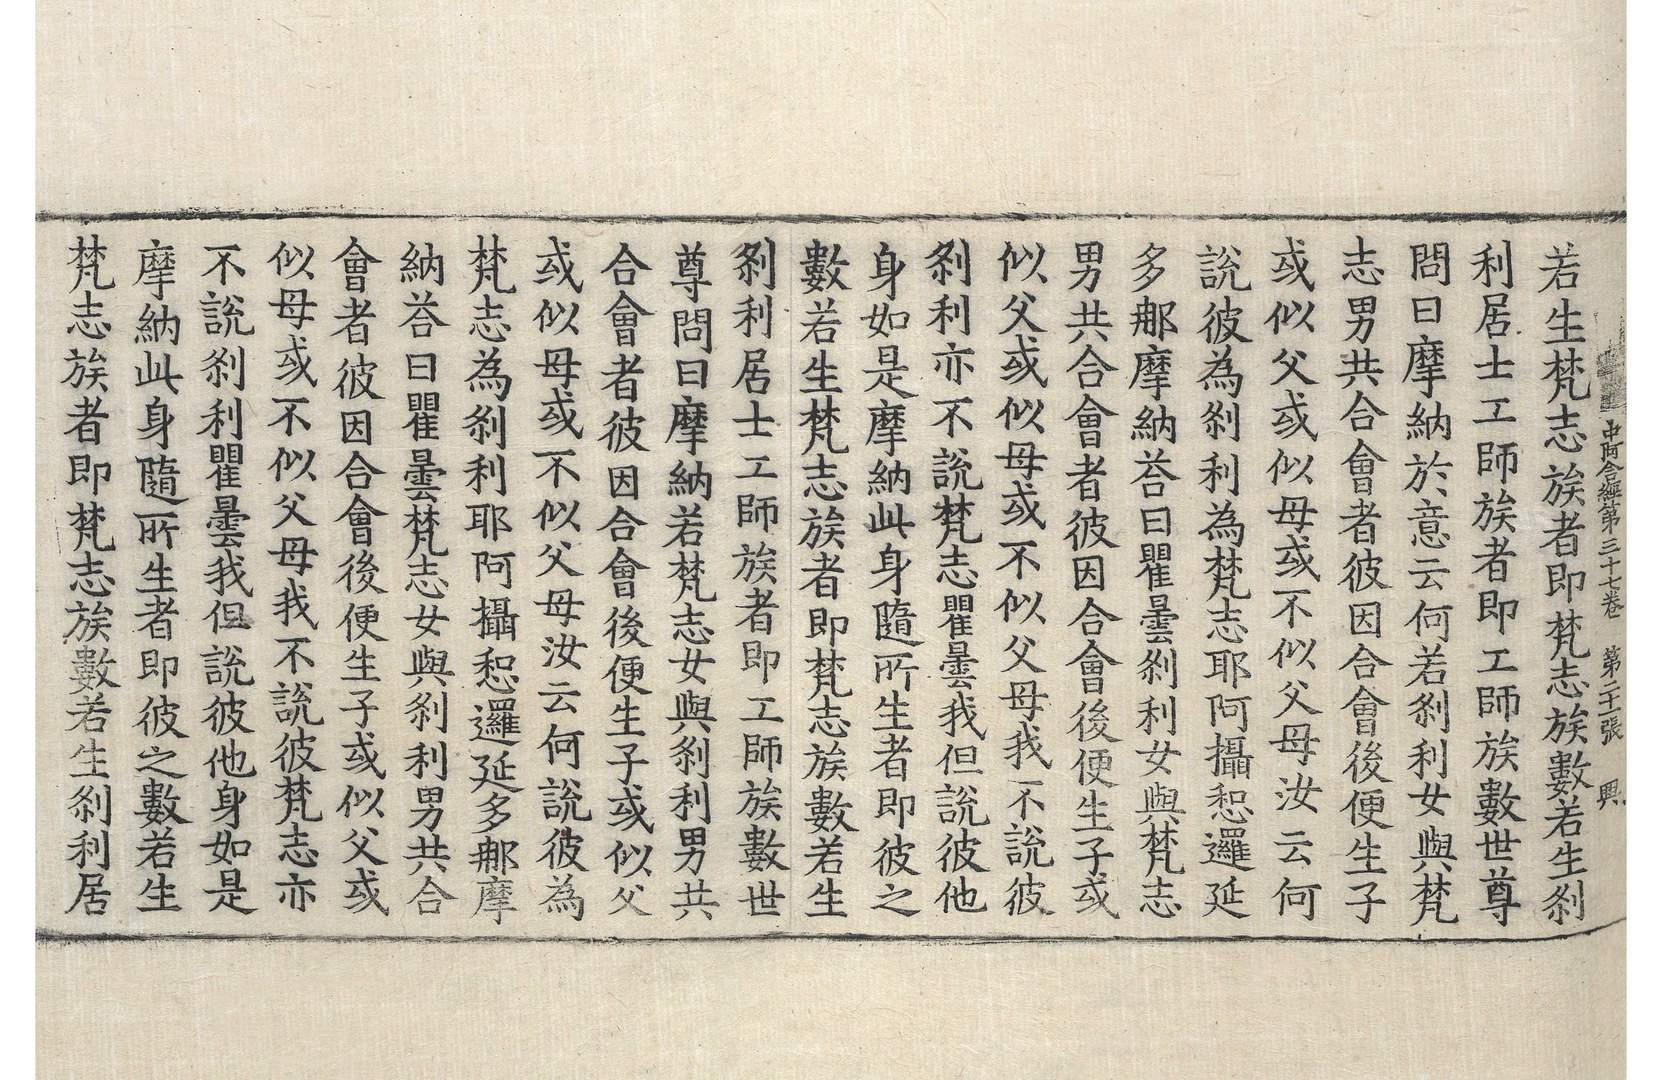 中阿含經第三十七卷　第二十張　興
若生梵志族者即梵志族數若生剎
利居士工師族者即工師族數世尊
問曰摩納於意云何若剎利女與梵
志男共合會者彼因合會後便生子
或似父或似母或不似父母汝云何
說彼為剎利為梵志耶阿攝惒邏延
多那摩納荅曰瞿曇剎利女與梵志
男共合會者彼因合會後便生子或
似父或似母或不似父母我不說彼
剎利亦不說梵志瞿曇我但說彼他
身如是摩納此身隨所生者即彼之
數若生梵志族者即梵志族數若生
剎利居士工師族者即工師族數世
尊問曰摩納若梵志女與剎利男共
合會者彼因合會後便生子或似父
或似母或不似父母汝云何說彼為
梵志為剎利耶阿攝惒邏延多那摩
納荅曰瞿曇梵志女與剎利男共合
會者彼因合會後便生子或似父或
似母或不似父母我不說彼梵志亦
不說剎利瞿曇我但說彼他身如是
摩納此身隨所生者即彼之數若生
梵志族者即梵志族數若生剎利居